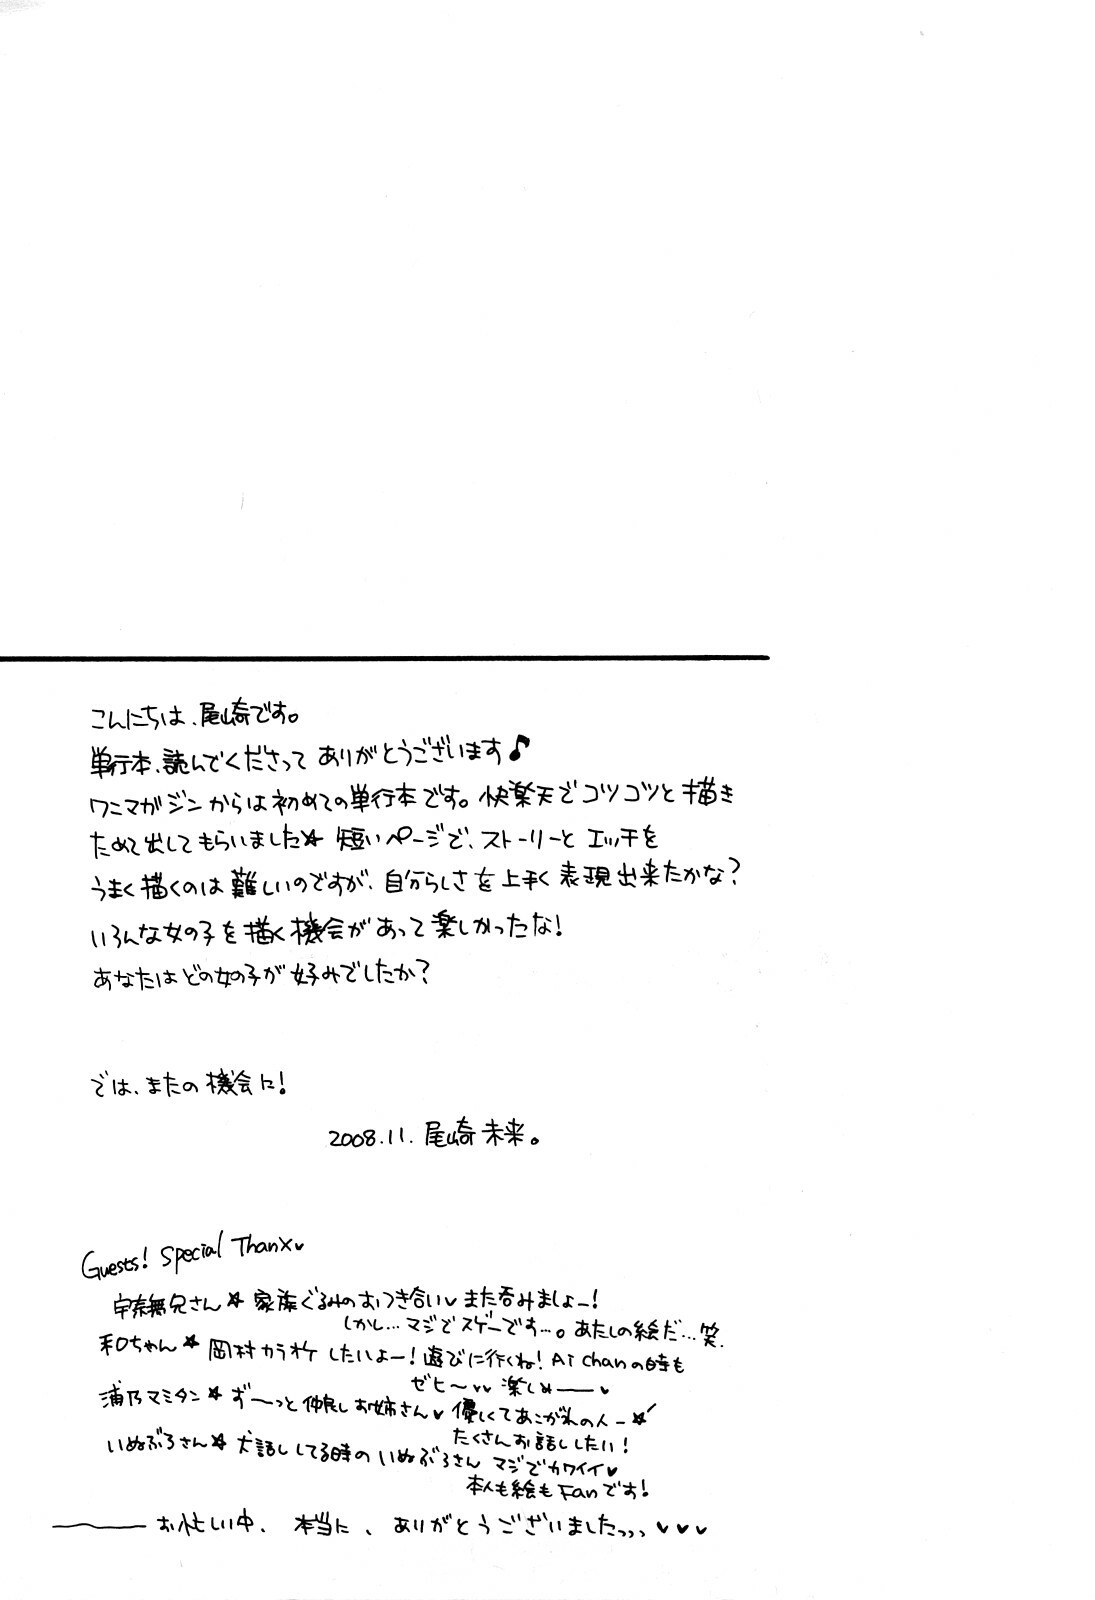 こんにちは、尾崎です。
単行本、読んでくださって ありがとうございます♪
ワニマガジンからは初めての単行本です。快楽天でコツコツと描き
ためて出してもらいました☆ 短いページで、ストーリーと エッチを
うまく描くのは難しいのですが、自分らしさを上手く表現出来たかな?
いろんな女の子を描く機会があって楽しかったな!
あなたはどの女の子が好みでしたか?
では、またの機会に!
2008.11. 尾崎未来。
Guests! Special Thanx♥
宇奈無兄さん☆ 家族ぐるみのおつき合い♥また呑みましょー!
しかし…マジでスゲーです…。あたしの絵だ…笑.
和ちゃん☆ 岡村カラオケしたいよー!遊びに行くね! Ai chanの時も
ゼヒ〜♥♥ 楽しめーー♥
浦乃マミタン☆ ず〜っと仲良しお姉さん♥ 優しくてあこがれの人ー☆
たくさんお話ししたい!
いぬぶろさん☆ 犬話ししてる時の いぬぶろさん マジでカワイイ♥
本人も絵もFanです!
――お忙しい中、本当に、ありがとうございましたっっっ♥♥♥